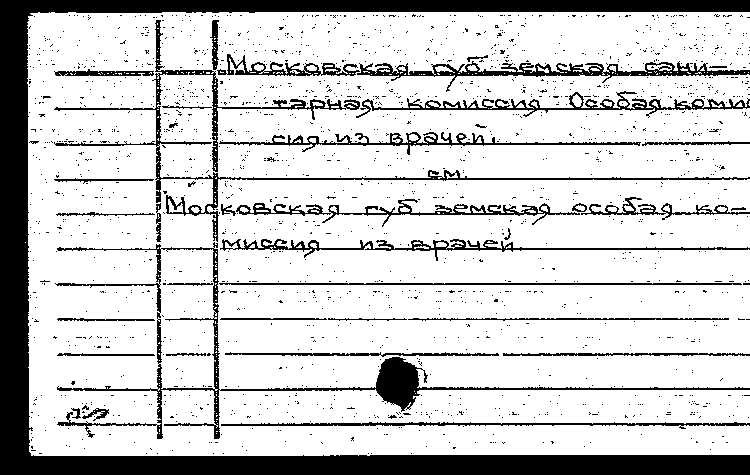 Московская губ. земская сани-
тарная комиссия. Особая комис
сия из врачей.
см.
Московская губ земская особая ко-
миссия из врачей.